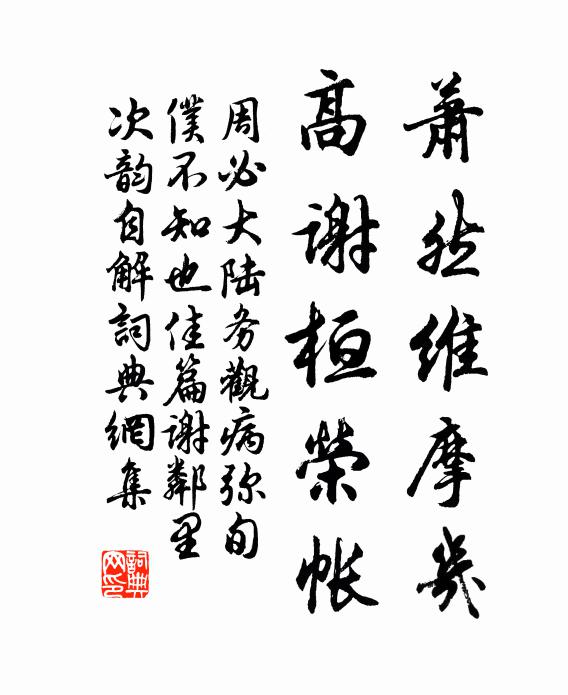 蕭然維摩几
高謝桓榮帳
周必大陸務觀病弥旬
僕不知也佳篇謝鄰里
次韵自解詞典網集
詞典網印